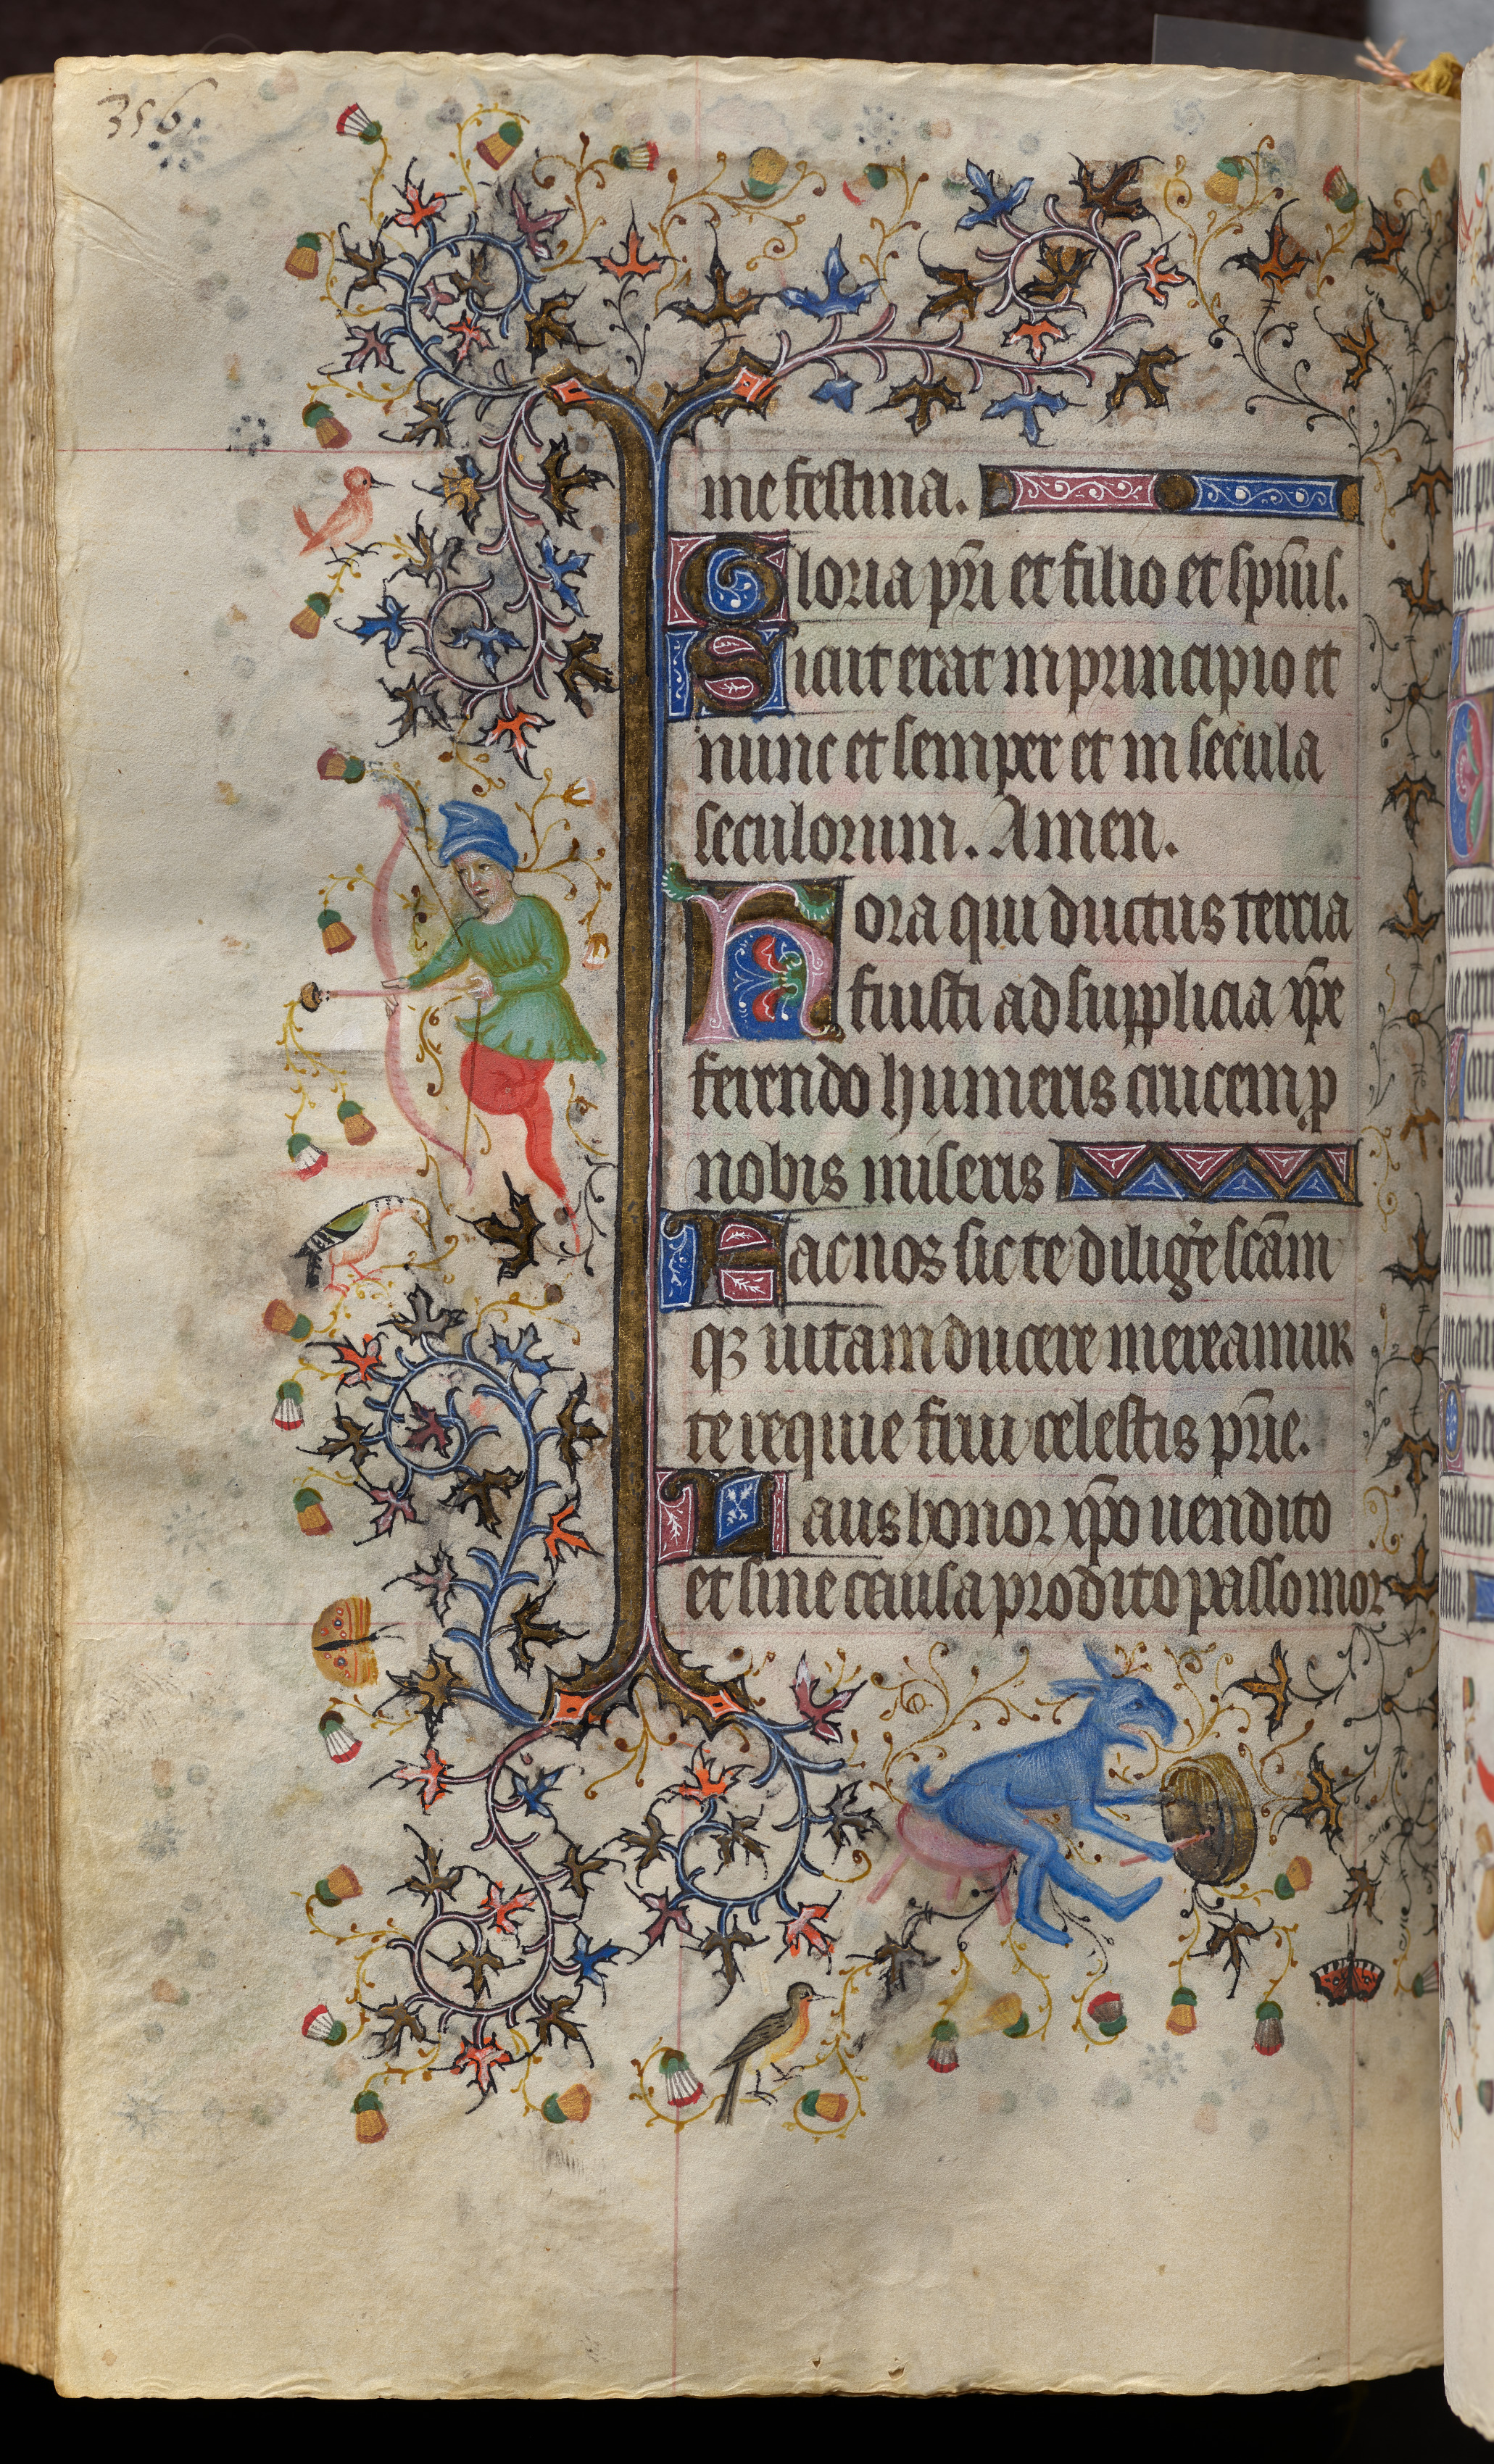 356
me festina.
Gloria pr̄i et filio et sp̄uīs.
Sicut erat in principio et
nunc et semper et in secula
seculorum. Amen.
Hora qui ductus tercia
fuisti ad supplicia xp̄e
ferendo humeris crucem ꝓ
nobis miseris
Fac nos sic te diliḡe sc̄am
qꝫ uitam ducere mereamur
te requie frui celestis pr̄ie.
Laus honor xp̄o uendito
et sine causa prodito passo mor